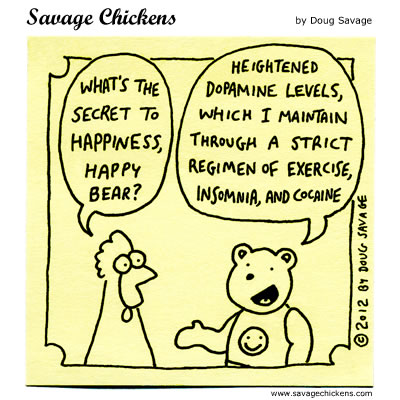 Savage Chickens
by Doug Savage
WHAT'S THE
SECRET TO
HAPPINESS,
HAPPY
BEAR?
HEIGHTENED
DOPAMINE LEVELS,
WHICH I MAINTAIN
THROUGH A STRICT
REGIMEN OF EXERCISE,
INSOMNIA, AND COCAINE
© 2012 BY DOUG SAVAGE
www.savagechickens.com